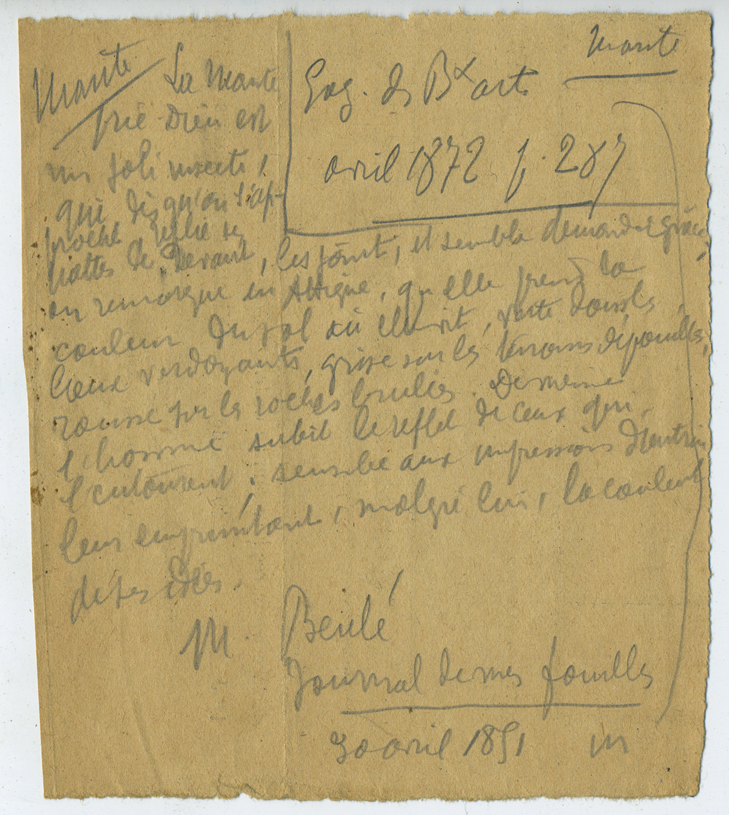 Mante
Gaz. des Bx arts
avril 1872 p. 287
Mante La Mante
prie-Dieu est
un joli insecte !
qui dès qu'on s'ap-
proche replie ses
pattes de devant, les joint, et semble demander grâce,
on remarque en Attique, qu'elle prend la
couleur du sol où elle vit, verte dans les
lieux verdoyants, grise sur les terrains dépouillés,
rousse sur les roches brulées. De même
l'homme subit le reflet de ceux qui
l'entourent ; sensible aux impressions d'autrui
leur empruntant, malgré lui, la couleur
de ses idées.
M Beulé
Journal de mes fouilles
30 avril 1851 m